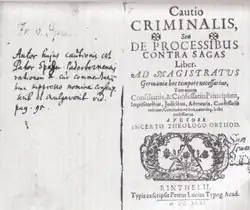 Fr. v. Spee
Autor hujus cautionis est
Pater Spee
suppresso nomine
pag. 91.
Cautio
CRIMINALIS,
Seu
DE PROCESSIBUS
CONTRA SAGAS
Liber.
AD MAGISTRATUS
Germaniæ hoc tempore necessarius,
Tum autem
Consiliariis, & Confessariis Principum,
Inquisitoribus, Judicibus, Advocatis, Confessariis
reorum, Concionatoribus, cæterisq; lectu
utilissimus.
AUCTORE
INCERTO THEOLOGO ORTHOD.
RINTHELII,
Typis exscripsit Petrus Lucius Typog. Acad.